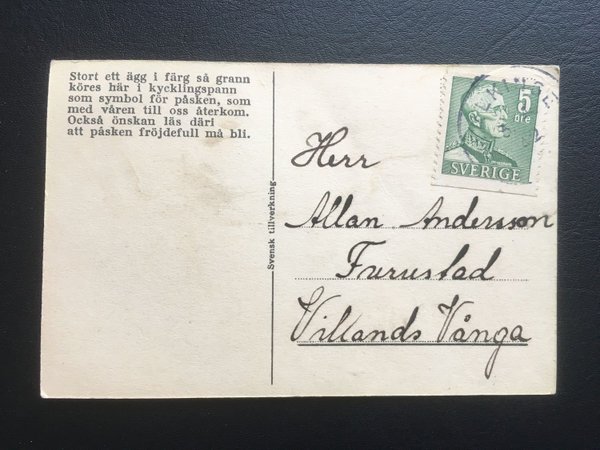 Stort ett ägg i färg så grann
köres här i kycklingspann
som symbol för påsken, som
med våren till oss återkom.
Också önskan läs däri
att påsken fröjdefull må bli.
Svensk tillverkning
5
öre
SVERIGE
Herr
Allan Andersson
Furustad
Villands Vånga